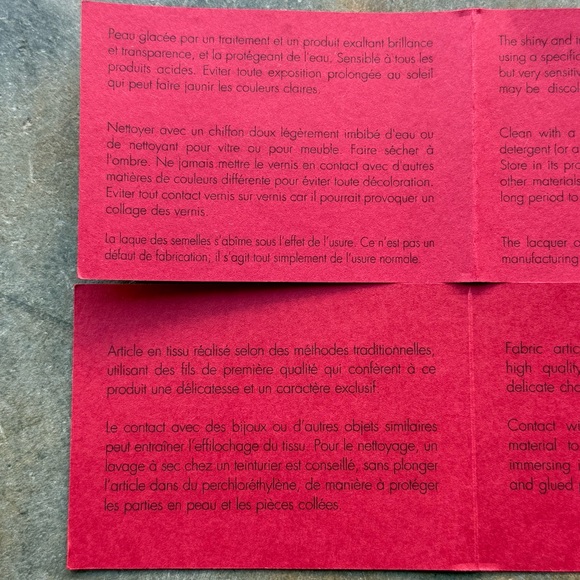 Peau glacée par un traitement et un produit exaltant brillance
et transparence, et la protégeant de l'eau. Sensible à tous les
produits acides. Eviter toute exposition prolongée au soleil
qui peut faire jaunir les couleurs claires.
Nettoyer avec un chiffon doux légèrement imbibé d'eau ou
de nettoyant pour vitre ou pour meuble. Faire sécher à
l'ombre. Ne jamais mettre le vernis en contact avec d'autres
matières de couleurs différente pour éviter toute décoloration.
Eviter tout contact vernis sur vernis car il pourrait provoquer un
collage des vernis.
La laque des semelles s'abîme sous l'effet de l'usure. Ce n'est pas un
défaut de fabrication; il s'agit tout simplement de l'usure normale.
The shiny and
using a specific
but very sensiti
may be discol
Clean with a
detergent (or a
Store in its pro
other materials
long period to
The lacquer
manufacturing
Article en tissu réalisé selon des méthodes traditionnelles,
utilisant des fils de première qualité qui confèrent à ce
produit une délicatesse et un caractère exclusif.
Le contact avec des bijoux ou d'autres objets similaires
peut entraîner l'effilochage du tissu. Pour le nettoyage, un
lavage à sec chez un teinturier est conseillé, sans plonger
l'article dans du perchloréthylène, de manière à protéger
les parties en peau et les pièces collées.
Fabric artic
high quality
delicate cha
Contact wi
material to
immersing
and glued